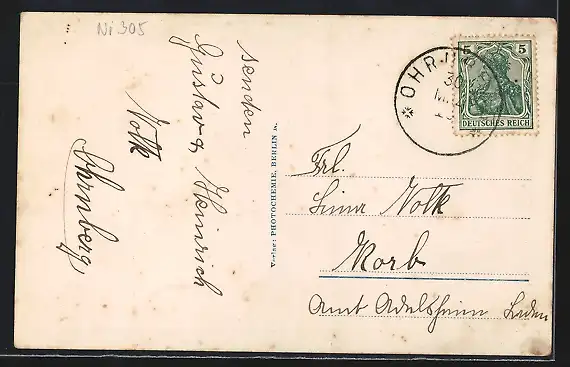 Ni 305
senden
Gustav & Heinrich
Volk
Ohrnberg
Verlag: PHOTOCHEMIE, BERLIN
OHRNBERG
30
5 5
DEUTSCHES REICH
Frl.
Lina Volk
Korb
Amt Adelsheim Baden